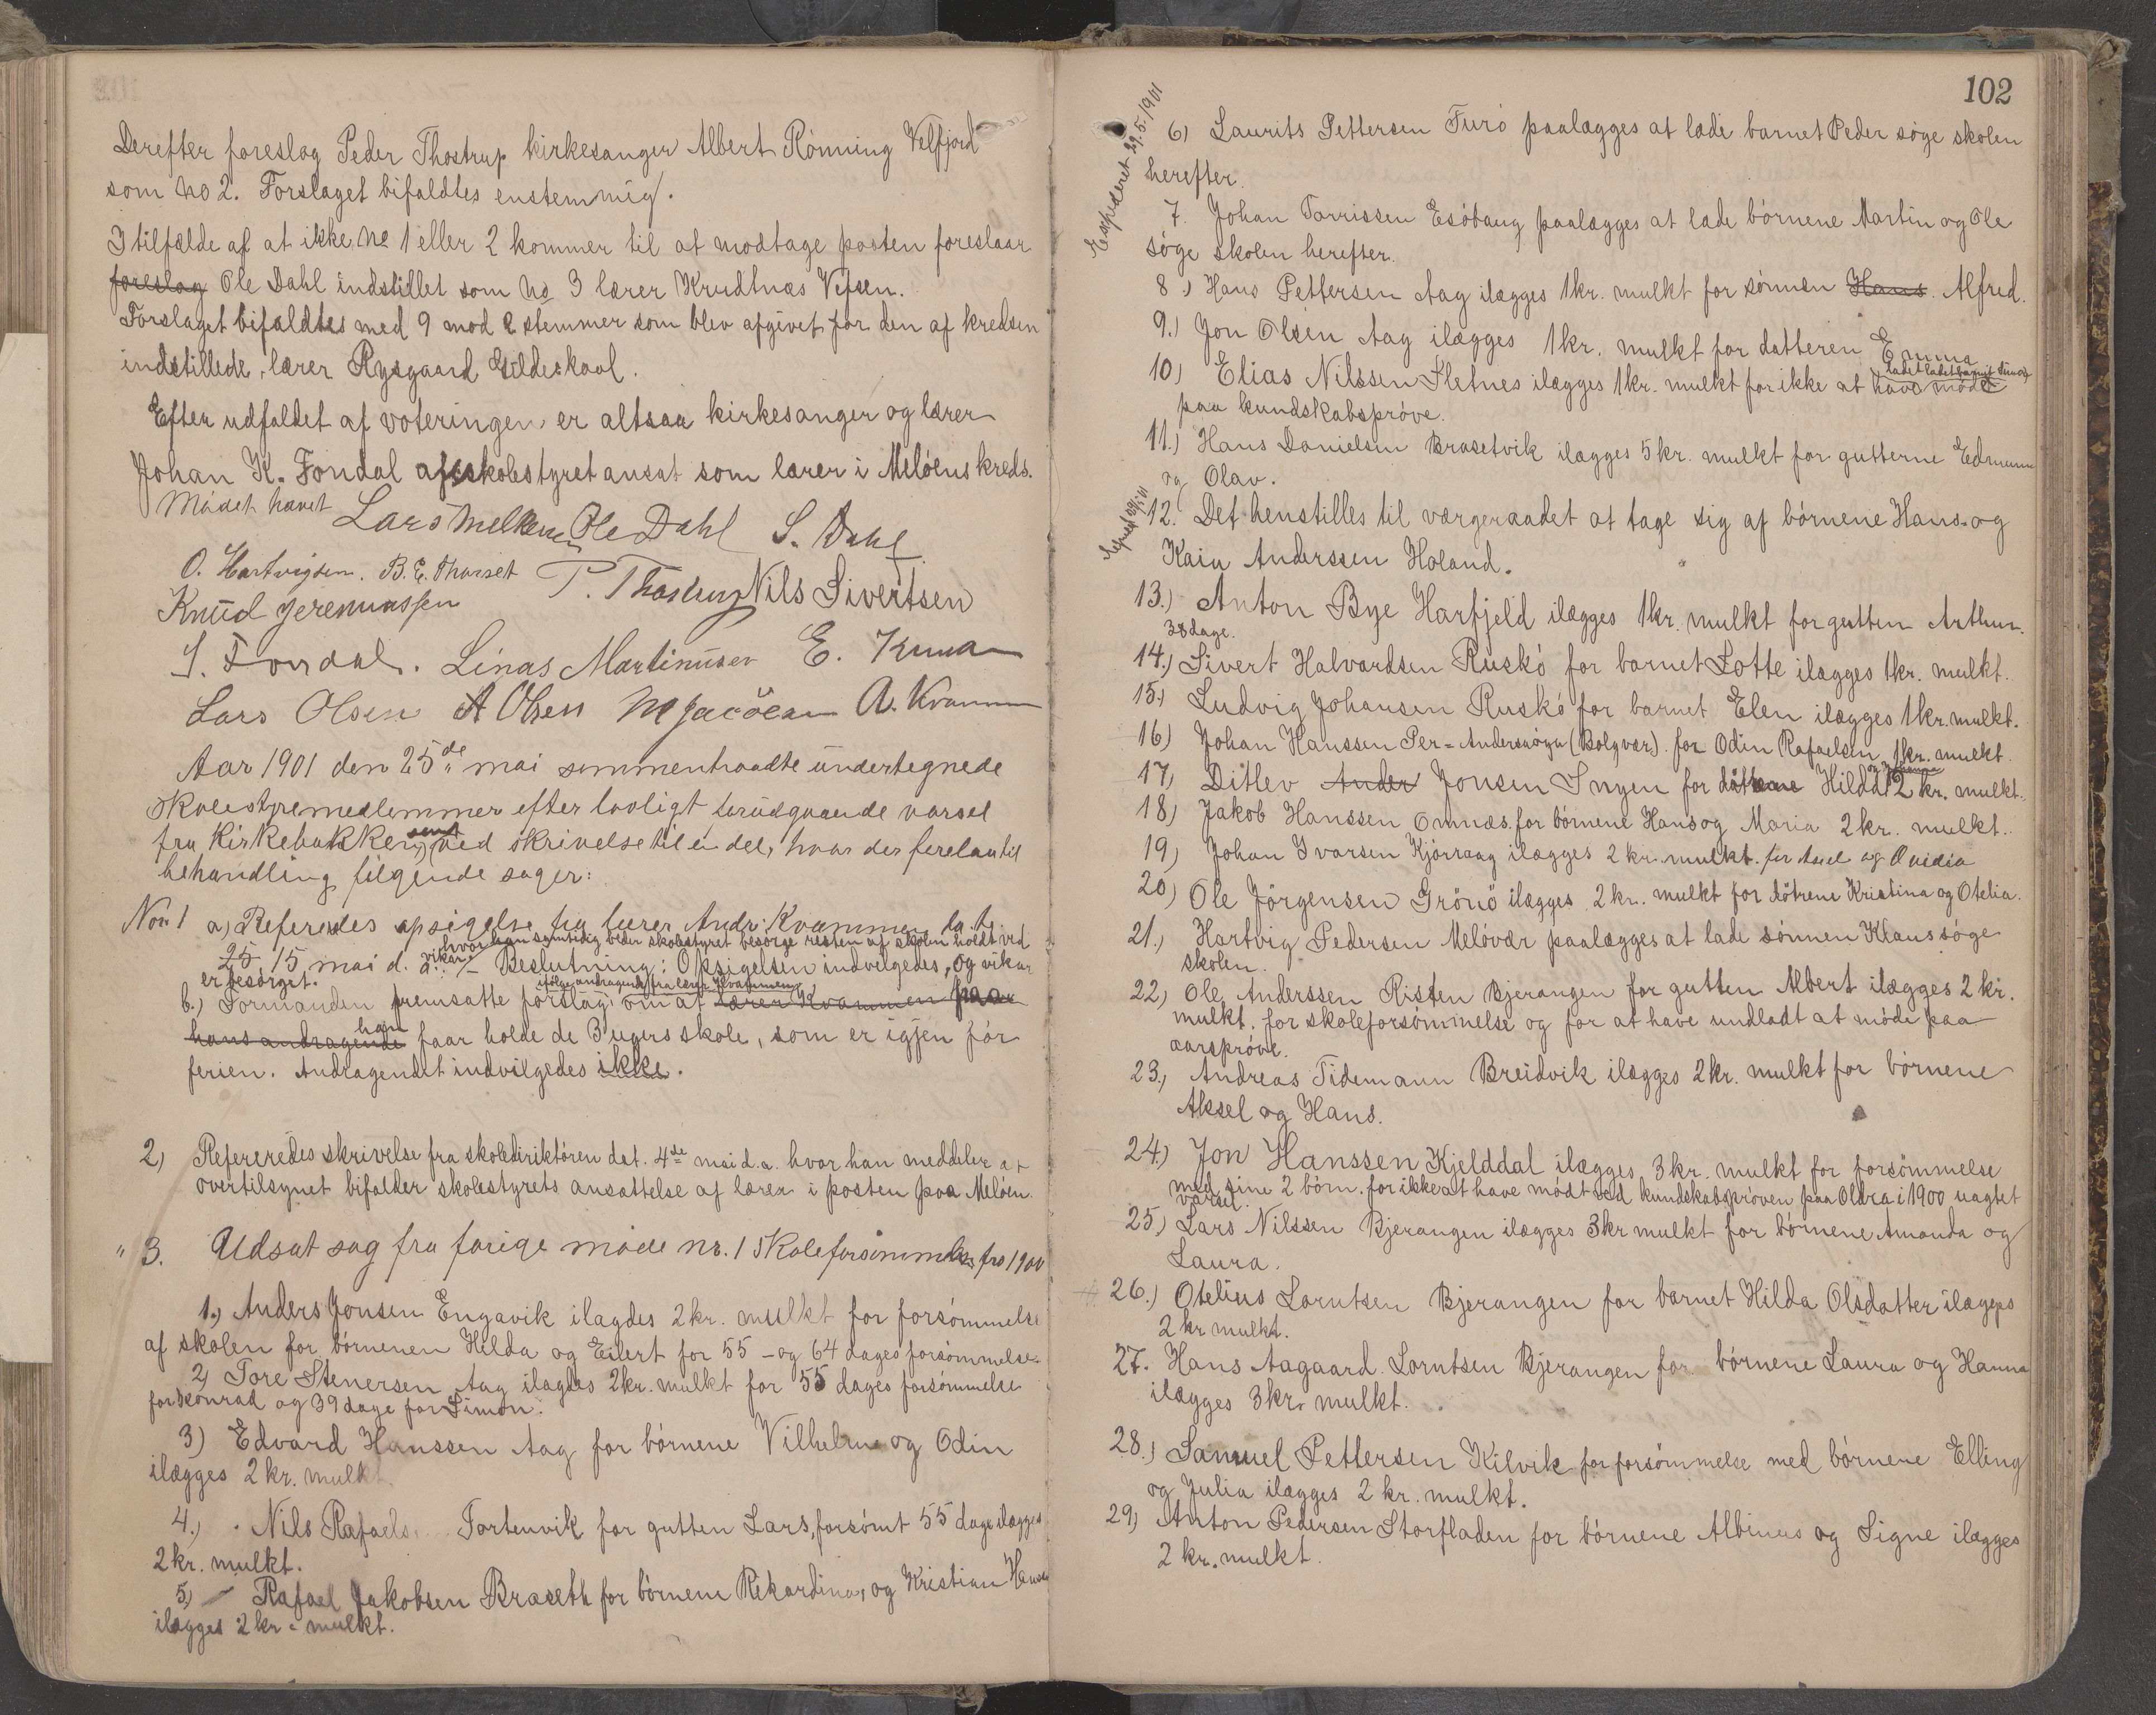 Derefter foreslog Peder Thostrup kirkesanger Albert Rönning Velfjord
som No 2. Forslaget bifaldtes enstemmig.
I tilfælde af at ikke No 1 eller 2 kommer til at modtage posten foreslaar
foreslog Ole Dahl indstillet som No 3 lærer Krudtnæs Vefsen.
Forslaget bifaldtes med 9 mod 2 stemmer som blev afgivet for den af kredsen
indstillede, lærer Rysgaard Gildeskaal.
Efter udfaldet af voteringen er altsaa kirkesanger og lærer
Johan K. Fondal af skolestyret ansat som lærer i Melöens kreds.
Mödet hævet
Lars Ole Dahl S. Dahl
O. Hartvigsen. B. E. Tharset P. Thostrup Nils Sivertsen
Knud Jeremiassen
J. Fondal. Linas Martinusen E.
Lars Olsen A Olsen A. Kvammen
Aar 1901 den 25de mai sammentraadte undertegnede
skolestyremedlemmer efter lovligt forudgaaende varsel
fra Kirkebakken, samt ved skrivelse til en del, hvor der forelaa til
behandling fölgende sager:
No. 1 a) Referedes opsigelse fra lærer Andr. Kvammen dat.
hvor han samtidig beder skolestyret besörge resten af skolen holdt ved
vikar.
25 15 mai d. a. /- Beslutning: Opsigelsen indvilgedes, og vikar
er besörget.
ifölge andragende fra lærer Kvammen
b.) Formanden fremsatte forslag om at lærer Kvammen paa
hans andragende han faar holde de 3 ugers skole, som er igjen för
ferien. Andragendet indvilgedes ikke.
2) Refereredes skrivelse fra skoledirektören dat. 4de mai d. a. hvor han meddeler at
overtilsynet bifalder skolestyrets ansættelse af lærer i posten paa Melöen.
" 3. Udsat sag fra forige möde nr. 1 Skoleforsömmelser fra 1900
1.) Anders Jonsen Engavik ilagdes 2 kr. mulkt for forsömmelse
af skolen for börnenen Hilda og Eilert for 55 - og 64 dages forsömmelse.
2) Tore Stenersen Aag ilagdes 2 kr. mulkt for 55 dages forsömmelse
for Konrad og 39 dage for Simon.
3) Edvard Hanssen Aag for börnene Vilhelm og Odin
ilægges 2 kr. mulkt.
4.) Nils Rafaels. Fortenvik for gutten Lars, forsömt 55 dage ilægges
2 kr. mulkt.
5) Rafael Jakobsen Braseth for börnene Rikardina, og Kristian
ilægges 2 kr. mulkt.
102
Expederet 29.5.1901
6) Laurits Pettersen Furö paalægges at lade barnet Peder söge skolen
herefter.
7. Johan Torrissen Esöbaug paalægges at lade börnene Martin og Ole
söge skolen herefter.
8.) Hans Pettersen Aag ilægges 1 kr. mulkt for sönnen Hans. Alfred.
9.) Jon Olsen Aag ilægges 1 kr. mulkt for datteren Emma
10) Elias Nilssen Sletnes ilægges 1 kr. mulkt for ikke at have mödt
ladet barnet
paa kundskabspröve.
11.) Hans Danielsen Brasetvik ilægges 5 kr. mulkt for gutterne Edmund
og Olav.
12. Det henstilles til værgeraadet at tage sig af börnene Hans og
Kaia Anderssen Holand.
13.) Anton Bye Harfjeld ilægges 1 kr. mulkt for gutten Arthur.
38 dage.
14.) Sivert Halvordsen Ruskö for barnet Lotte ilægges 1 kr. mulkt.
15.) Ludvig Johansen Ruskö for barnet Elen ilægges 1 kr. mulkt.
16) Johan Hanssen Per=Andersöya (Bolgvær) for Odin Rafaelsen 1 kr. mulkt.
17) Ditlev Ander Jonsen Inyen for Hilda 2 kr. mulkt.
18) Jakob Hanssen Omnæs for börnene Hans og Maria 2 kr. mulkt.
19) Johan Ivarsen Kjörraag ilægges 2 kr. mulkt for og Ovidia
20) Ole Jörgensen Grönö ilægges 2 kr. mulkt for dötrene Kristina og Otelia.
21.) Hartvig Pedersen Melövær paalægges at lade sönnen Klaus söge
skolen.
22.) Ole Anderssen Risten Bjerangen for gutten Albert ilægges 2 kr.
mulkt. for skoleforsömmelse og for at have undladt at möde paa
aarspröve.
23.) Andreas Tidemann Breidvik ilægges 2 kr. mulkt for börnene
Aksel og Hans.
24.) Jon Hanssen Kjelddal ilægges 3 kr. mulkt for forsömmelse
med sine 2 börn. for ikke at have mödt ved kundskabspröven paa Oldra i 1900 uagtet
varsel.
25.) Lars Nilssen Bjerangen ilægges 3 kr mulkt for börnene Amanda og
Laura.
26.) Otelius Lorntsen Bjerangen for barnet Hilda Olsdatter ilægges
2 kr mulkt.
27. Hans Aagaard Lorntsen Bjerangen for börnene Laura og Hanna
ilægges 3 kr. mulkt.
28.) Samuel Pettersen Kilvik for forsömmelse med börnene Elling
og Julia ilægges 2 kr. mulkt.
29.) Anton Pedersen Storfladen for börnene Albinus og Signe ilægges
2 kr. mulkt.